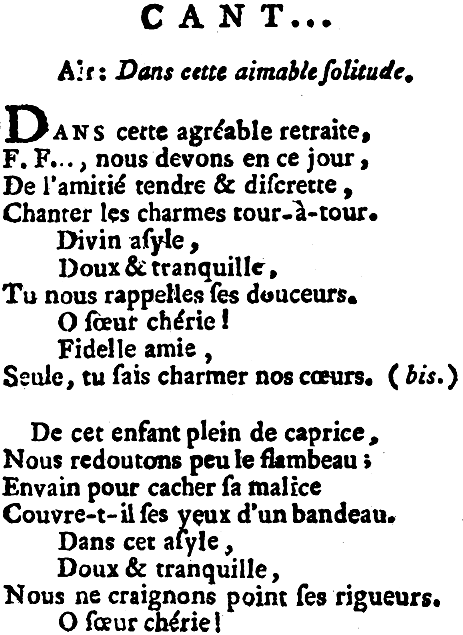 CANT...
Air: Dans cette aimable ſolitude.
DANS cette agréable retraite,
F. F..., nous devons en ce jour,
De l'amitié tendre & diſcrette,
Chanter les charmes tour-à-tour.
Divin aſyle,
Doux & tranquille,
Tu nous rappelles ſes douceurs.
O ſœur chérie!
Fidelle amie,
Seule, tu ſais charmer nos cœurs. (bis.)
De cet enfant plein de caprice,
Nous redoutons peu le flambeau;
Envain pour cacher ſa malice
Couvre-t-il ſes yeux d'un bandeau.
Dans cet aſyle,
Doux & tranquille,
Nous ne craignons point ſes rigueurs.
O ſœur chérie!